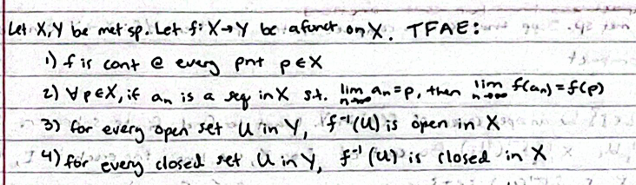 Let X,Y be met sp. Let f: X→Y be a funct on X. TFAE:
1) f is cont @ every pnt p∈X
2) ∀ p∈X, if aₙ is a seq in X s.t. lim n→∞ aₙ = p, then lim n→∞ f(aₙ) = f(p)
3) for every open set U in Y, f⁻¹(U) is open in X
4) for every closed set U in Y, f⁻¹(U) is closed in X